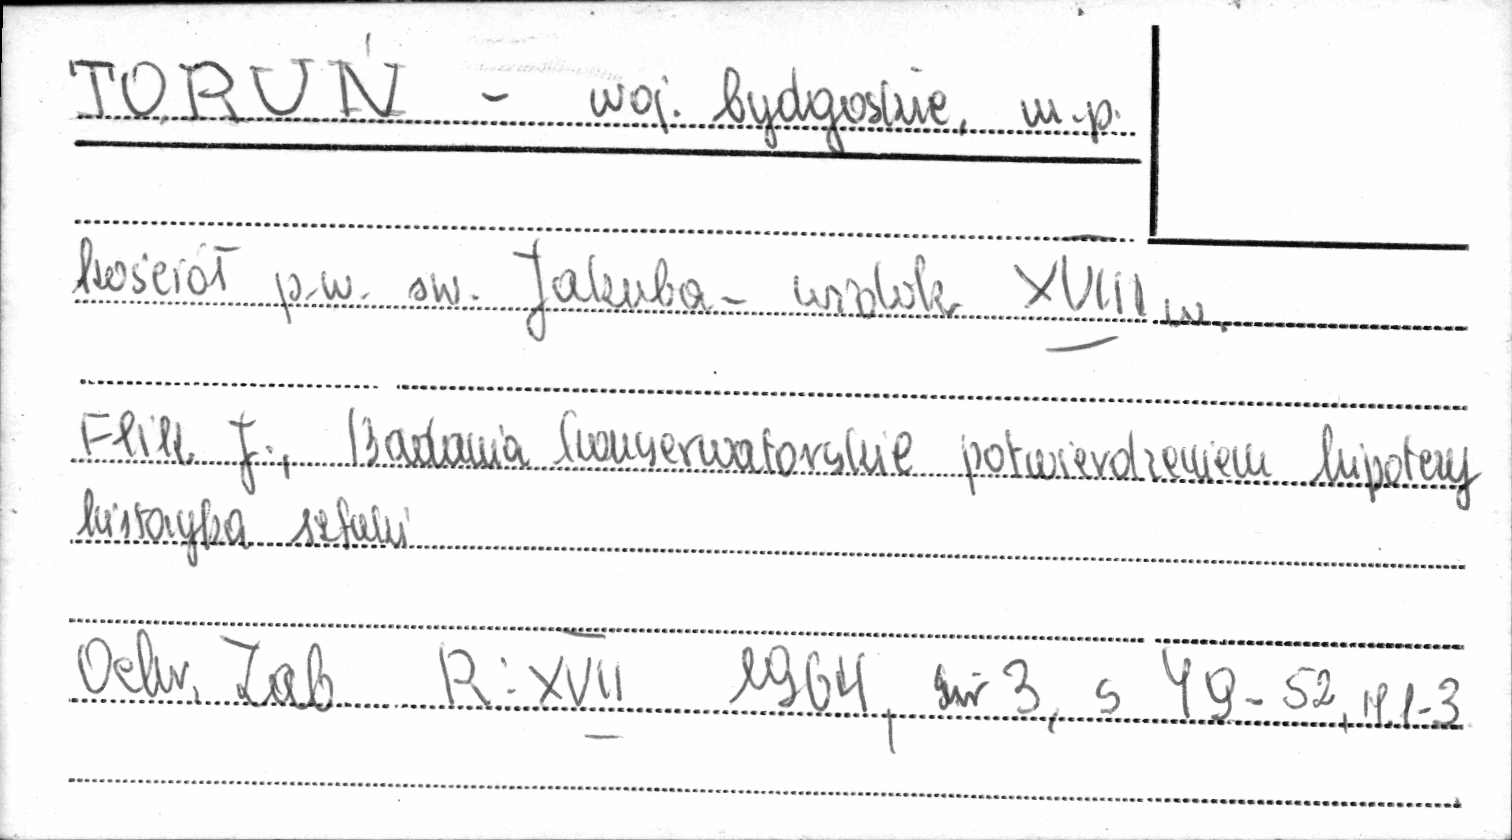 TORUŃ - woj. bydgoskie, m.p.
kościół p.w. św. Jakuba - widok XVIII w.
Flik J., Badania konserwatorskie potwierdzeniem hipotezy
historyka sztuki
Ochr. Zab R: XVII 1964, nr 3, s 49-52, il. 1-3